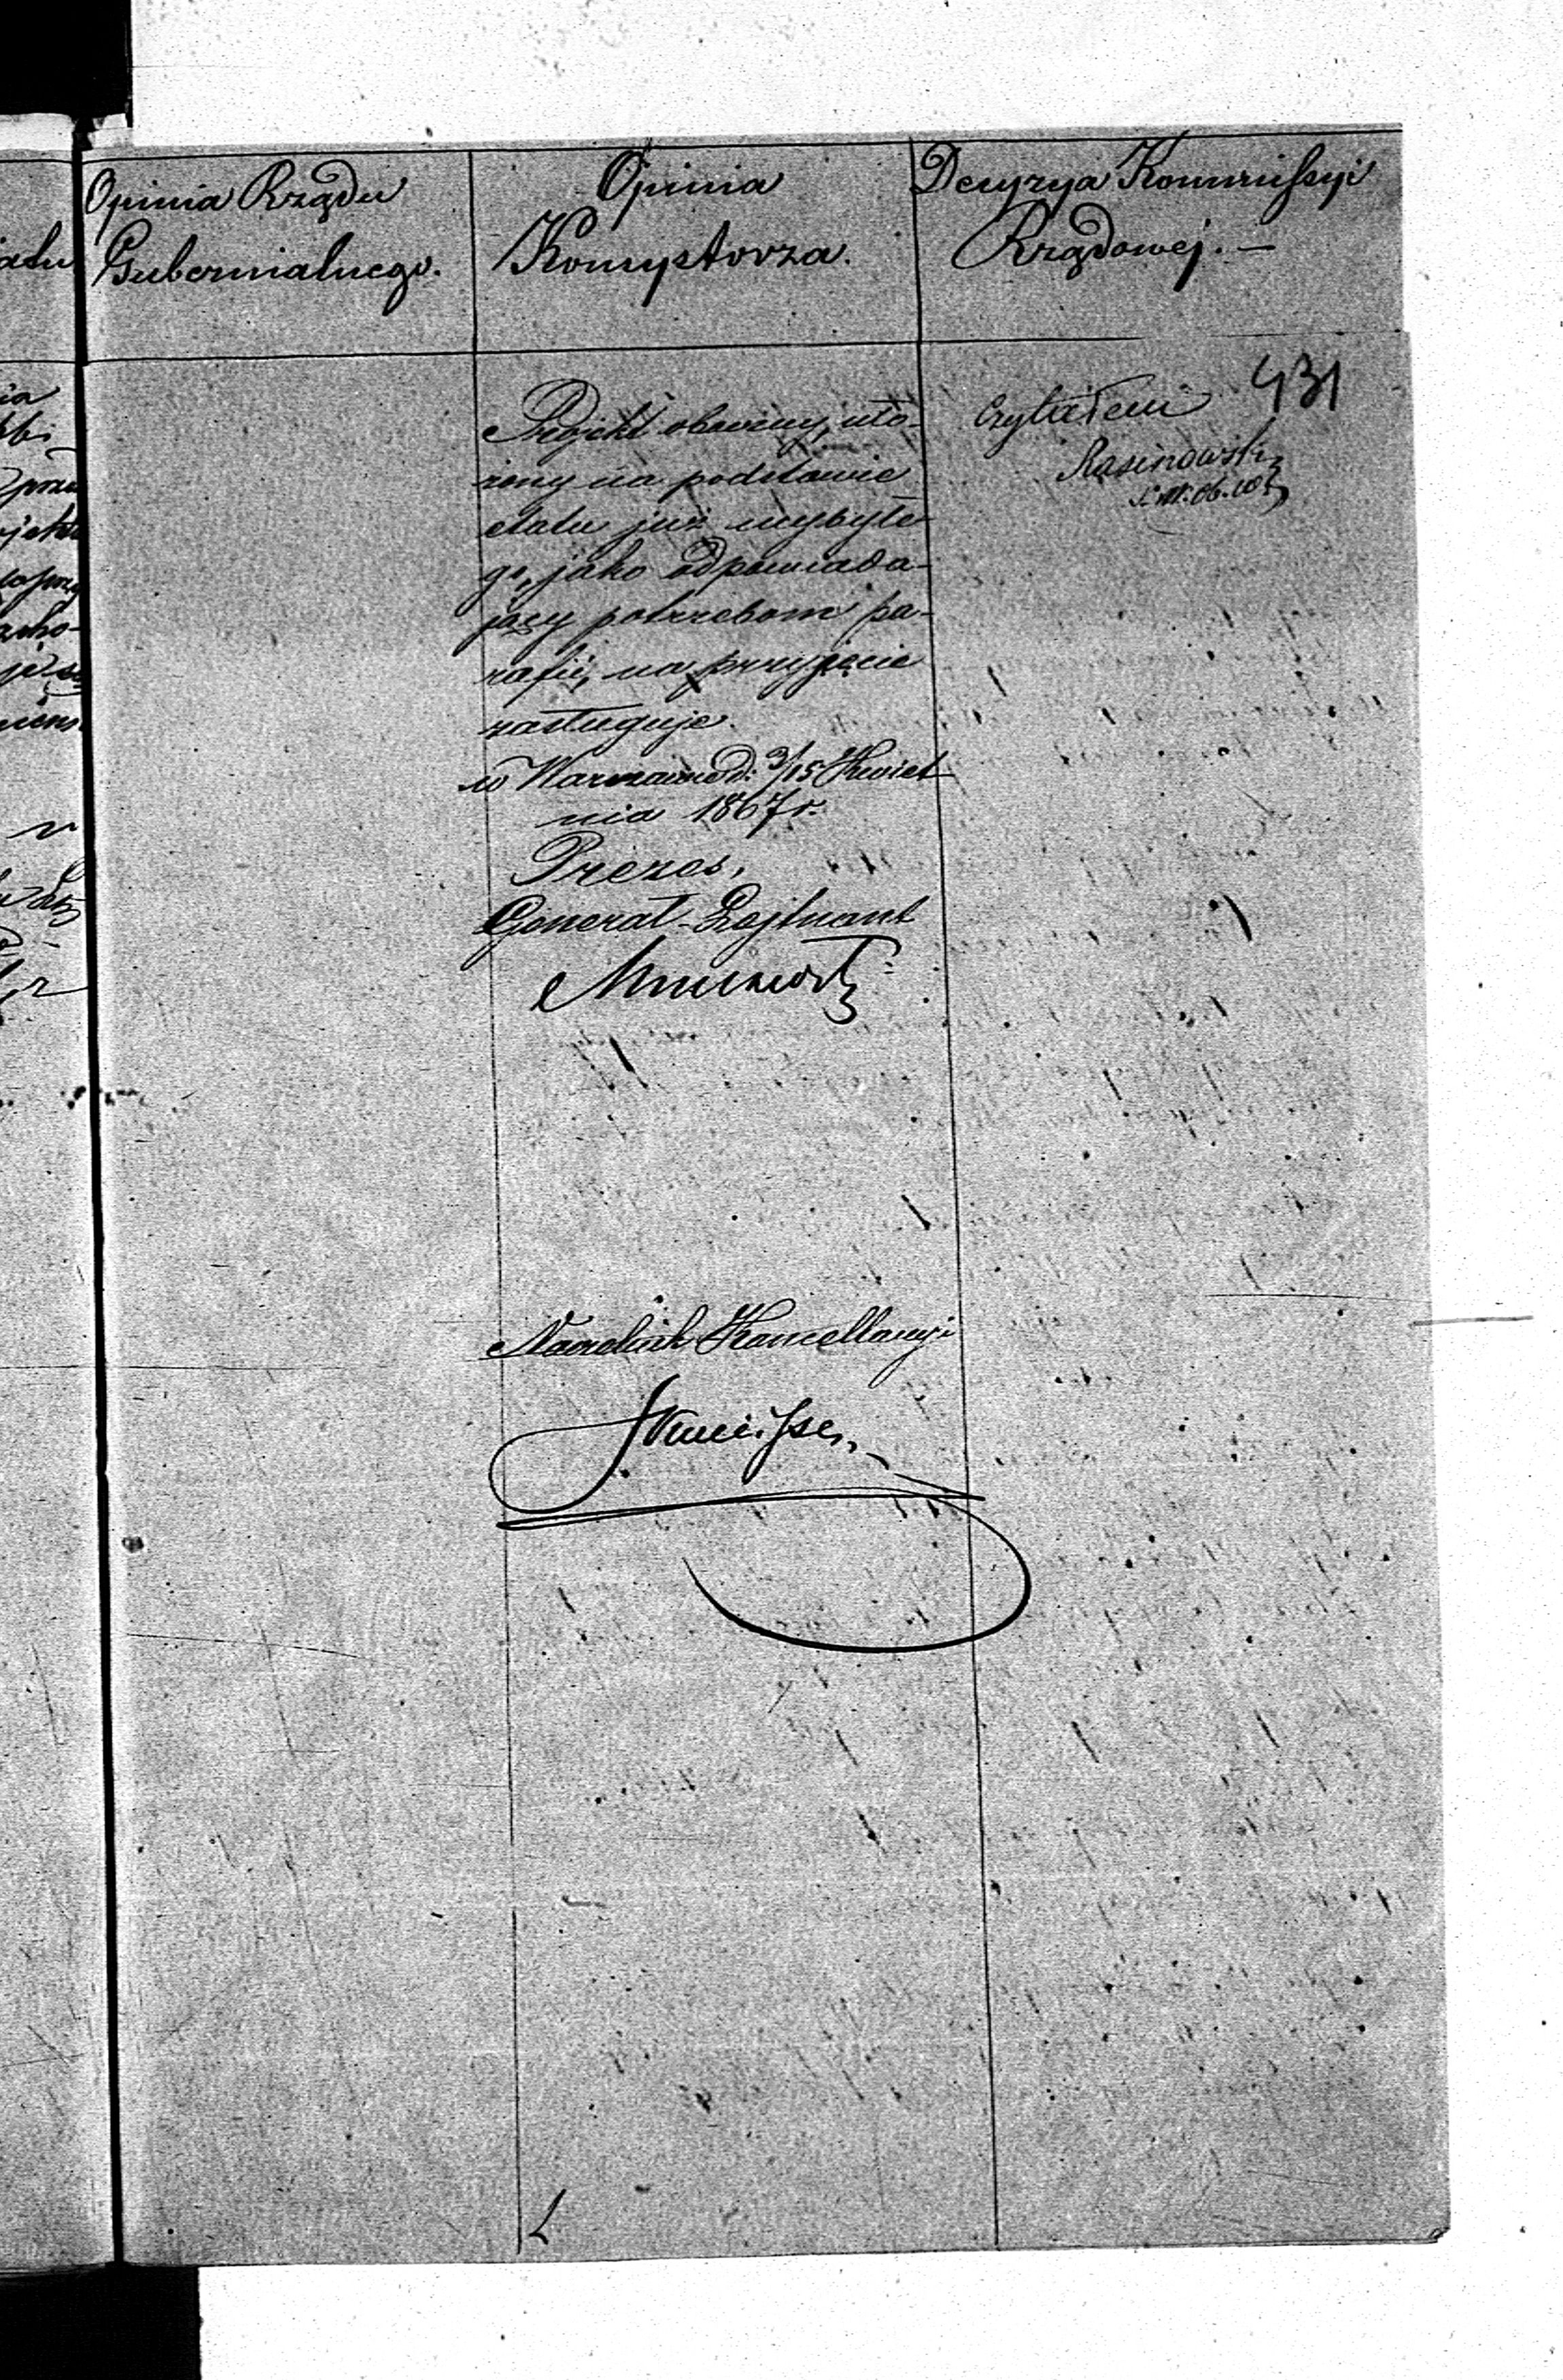 Opinia Rządu
Gubernialnego.
Opinia
Konsystorza.
Decyzya Kommissyi
Rządowej. —
431
Czytałem
Projekt obecny, uło-
żony na podstawie
etatu już
go, jako odpowiada-
jący potrzebom pa-
rafii, na przyjęcie
zasługuje.
w Warszawie d: 3/15 Kwiet
nia 1867 r.
Prezes,
Generał-Lejtnant
Naczelnik Kancellaryi